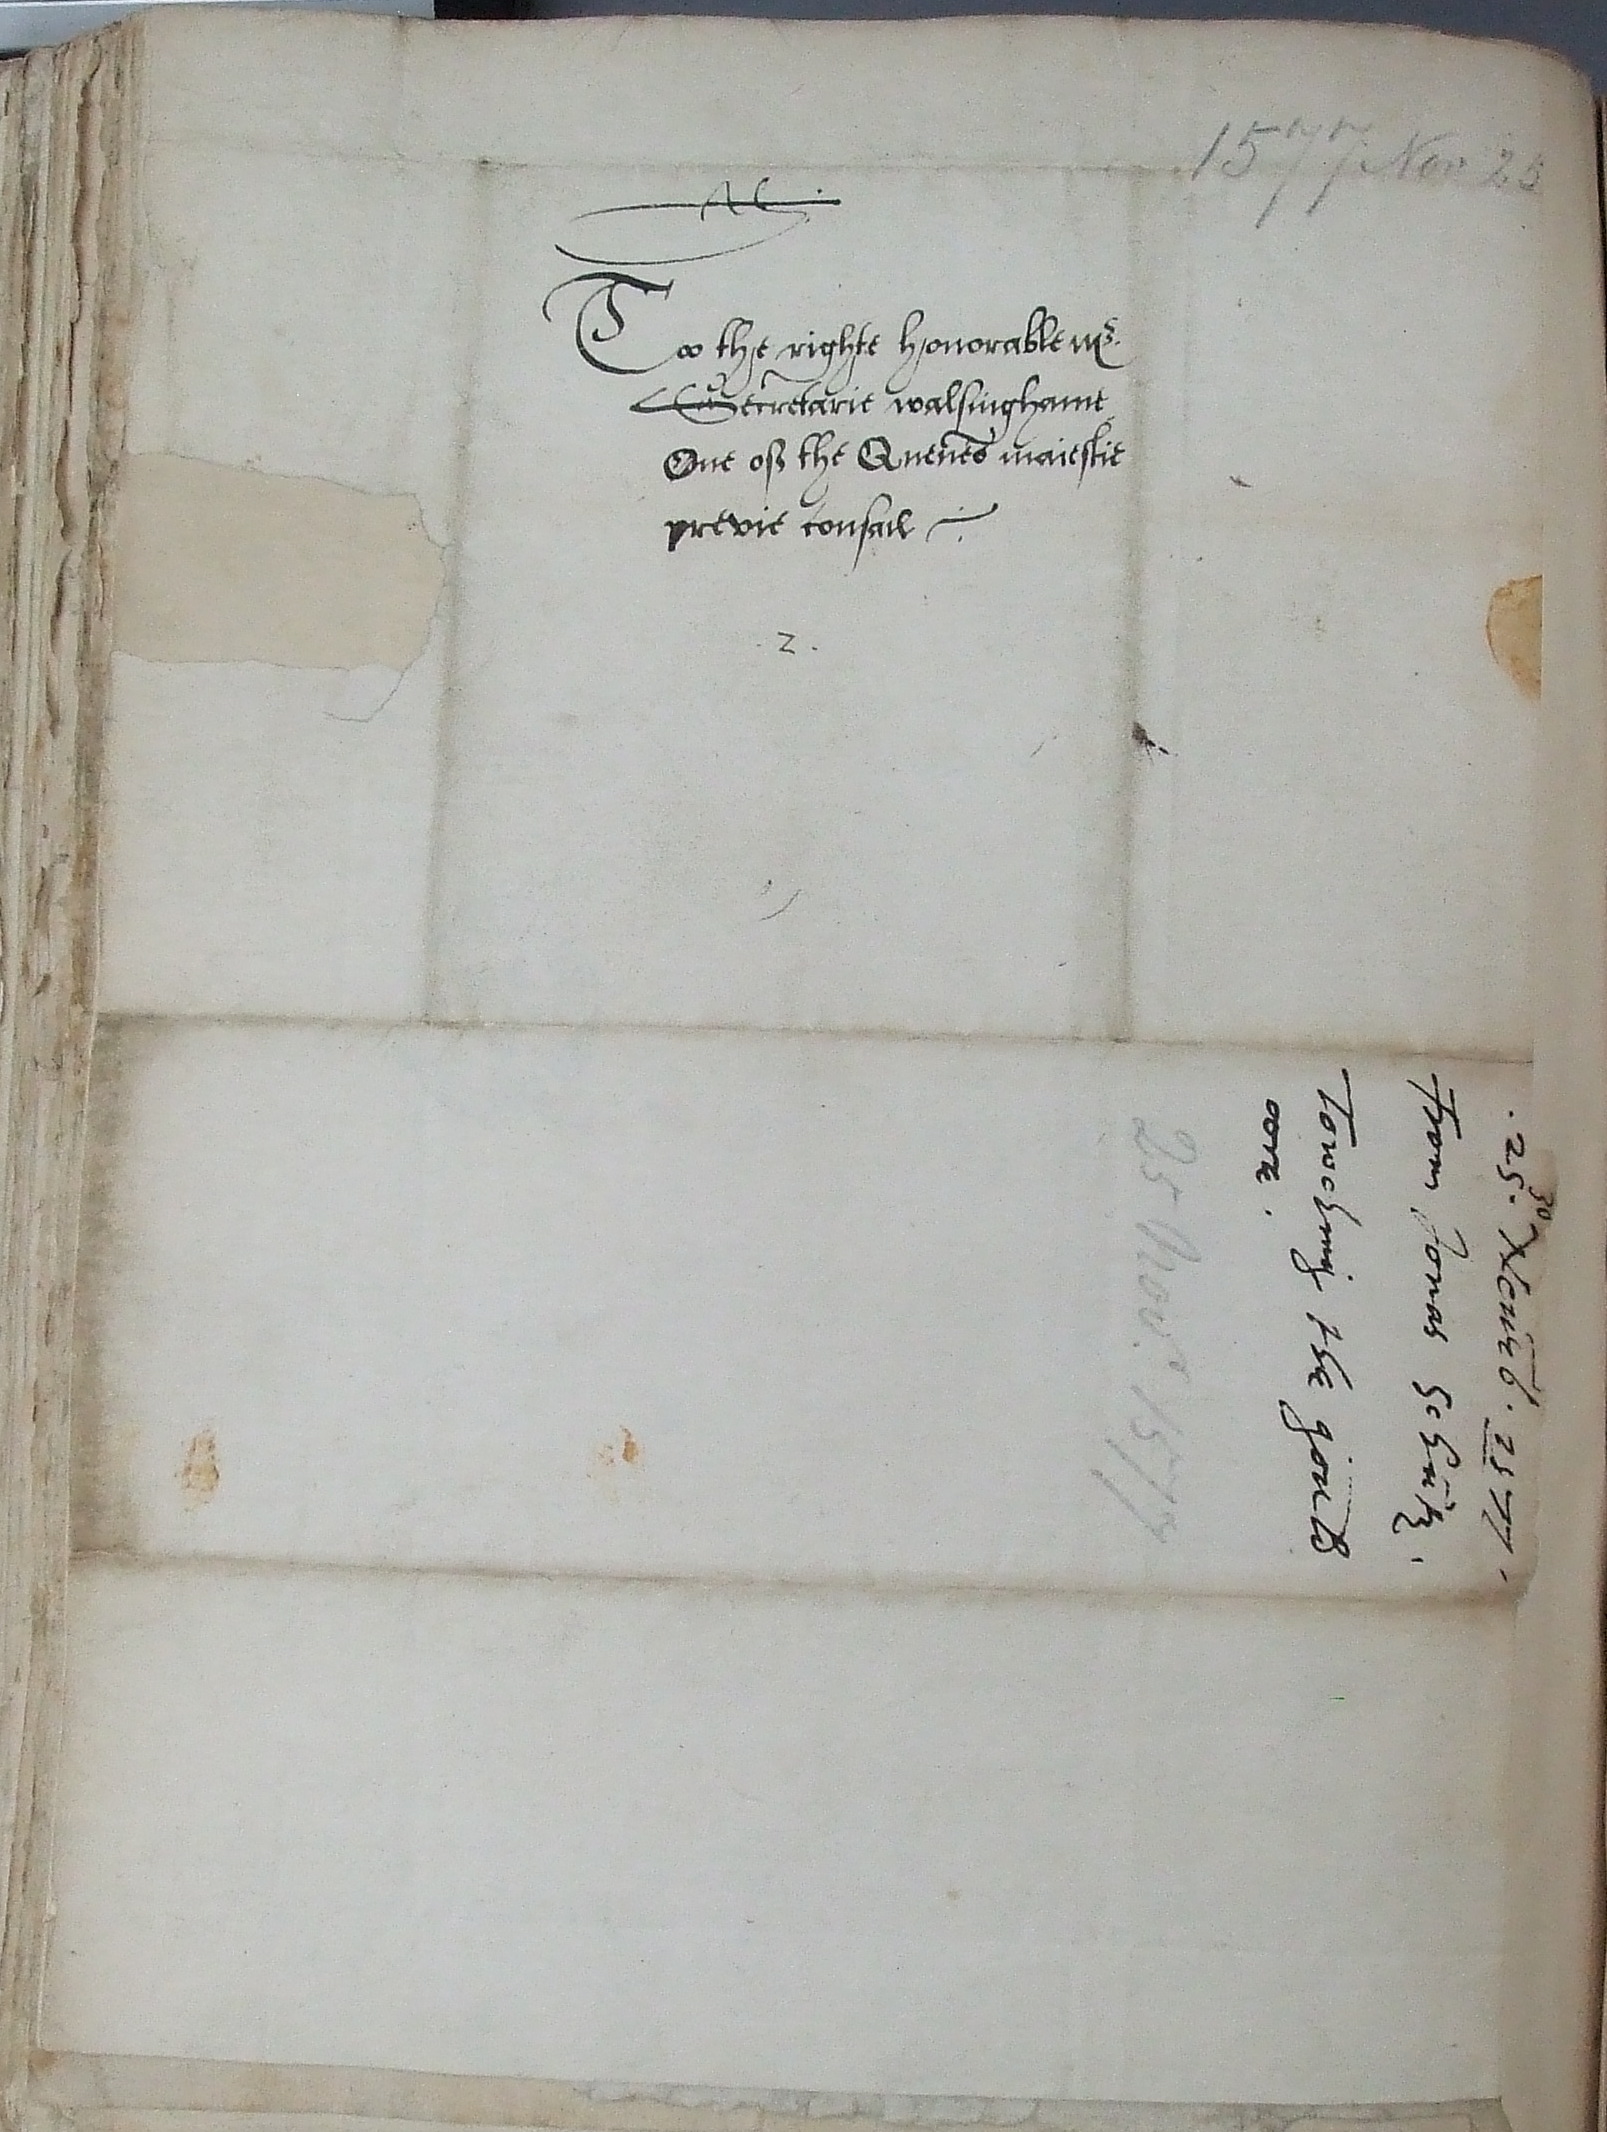 1577 Nov 25
Too the righte honorable mr.
Secretarie walsinghame
One off the Quenes maiestie
previe consail
.2.
.25. Novemb. 1577.
30
From Jonas Schutz.
Towching the gould
oore.
25 Novr 1577